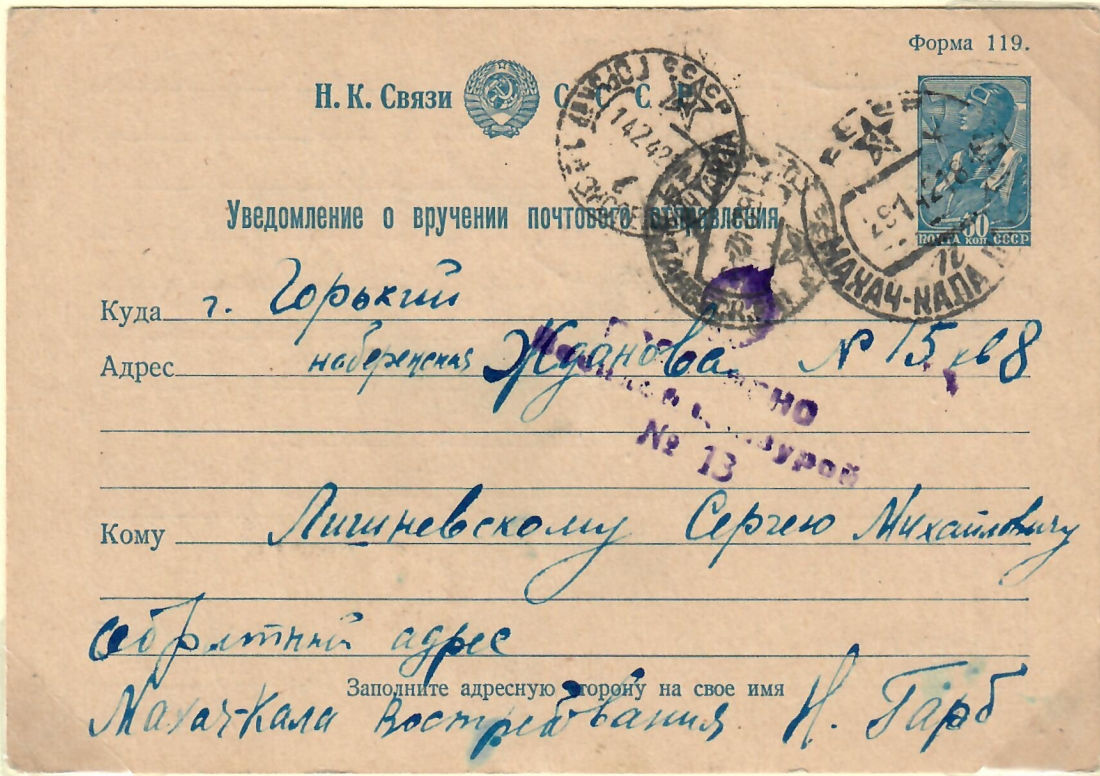 Форма 119.
Н. К. Связи С. С. С. Р.
ПОЧТА 50 КОП СССР
14 2 42
МАХАЧ-КАЛА
Уведомление о вручении почтового отправления
Куда г. Горький
Адрес набережная Жданова № 15 кв 8
№ 13
Кому Лишневскому Сергею Михайловичу
обратный адрес
Заполните адресную сторону на свое имя
Махач-Кала Востребования Н. Гарб